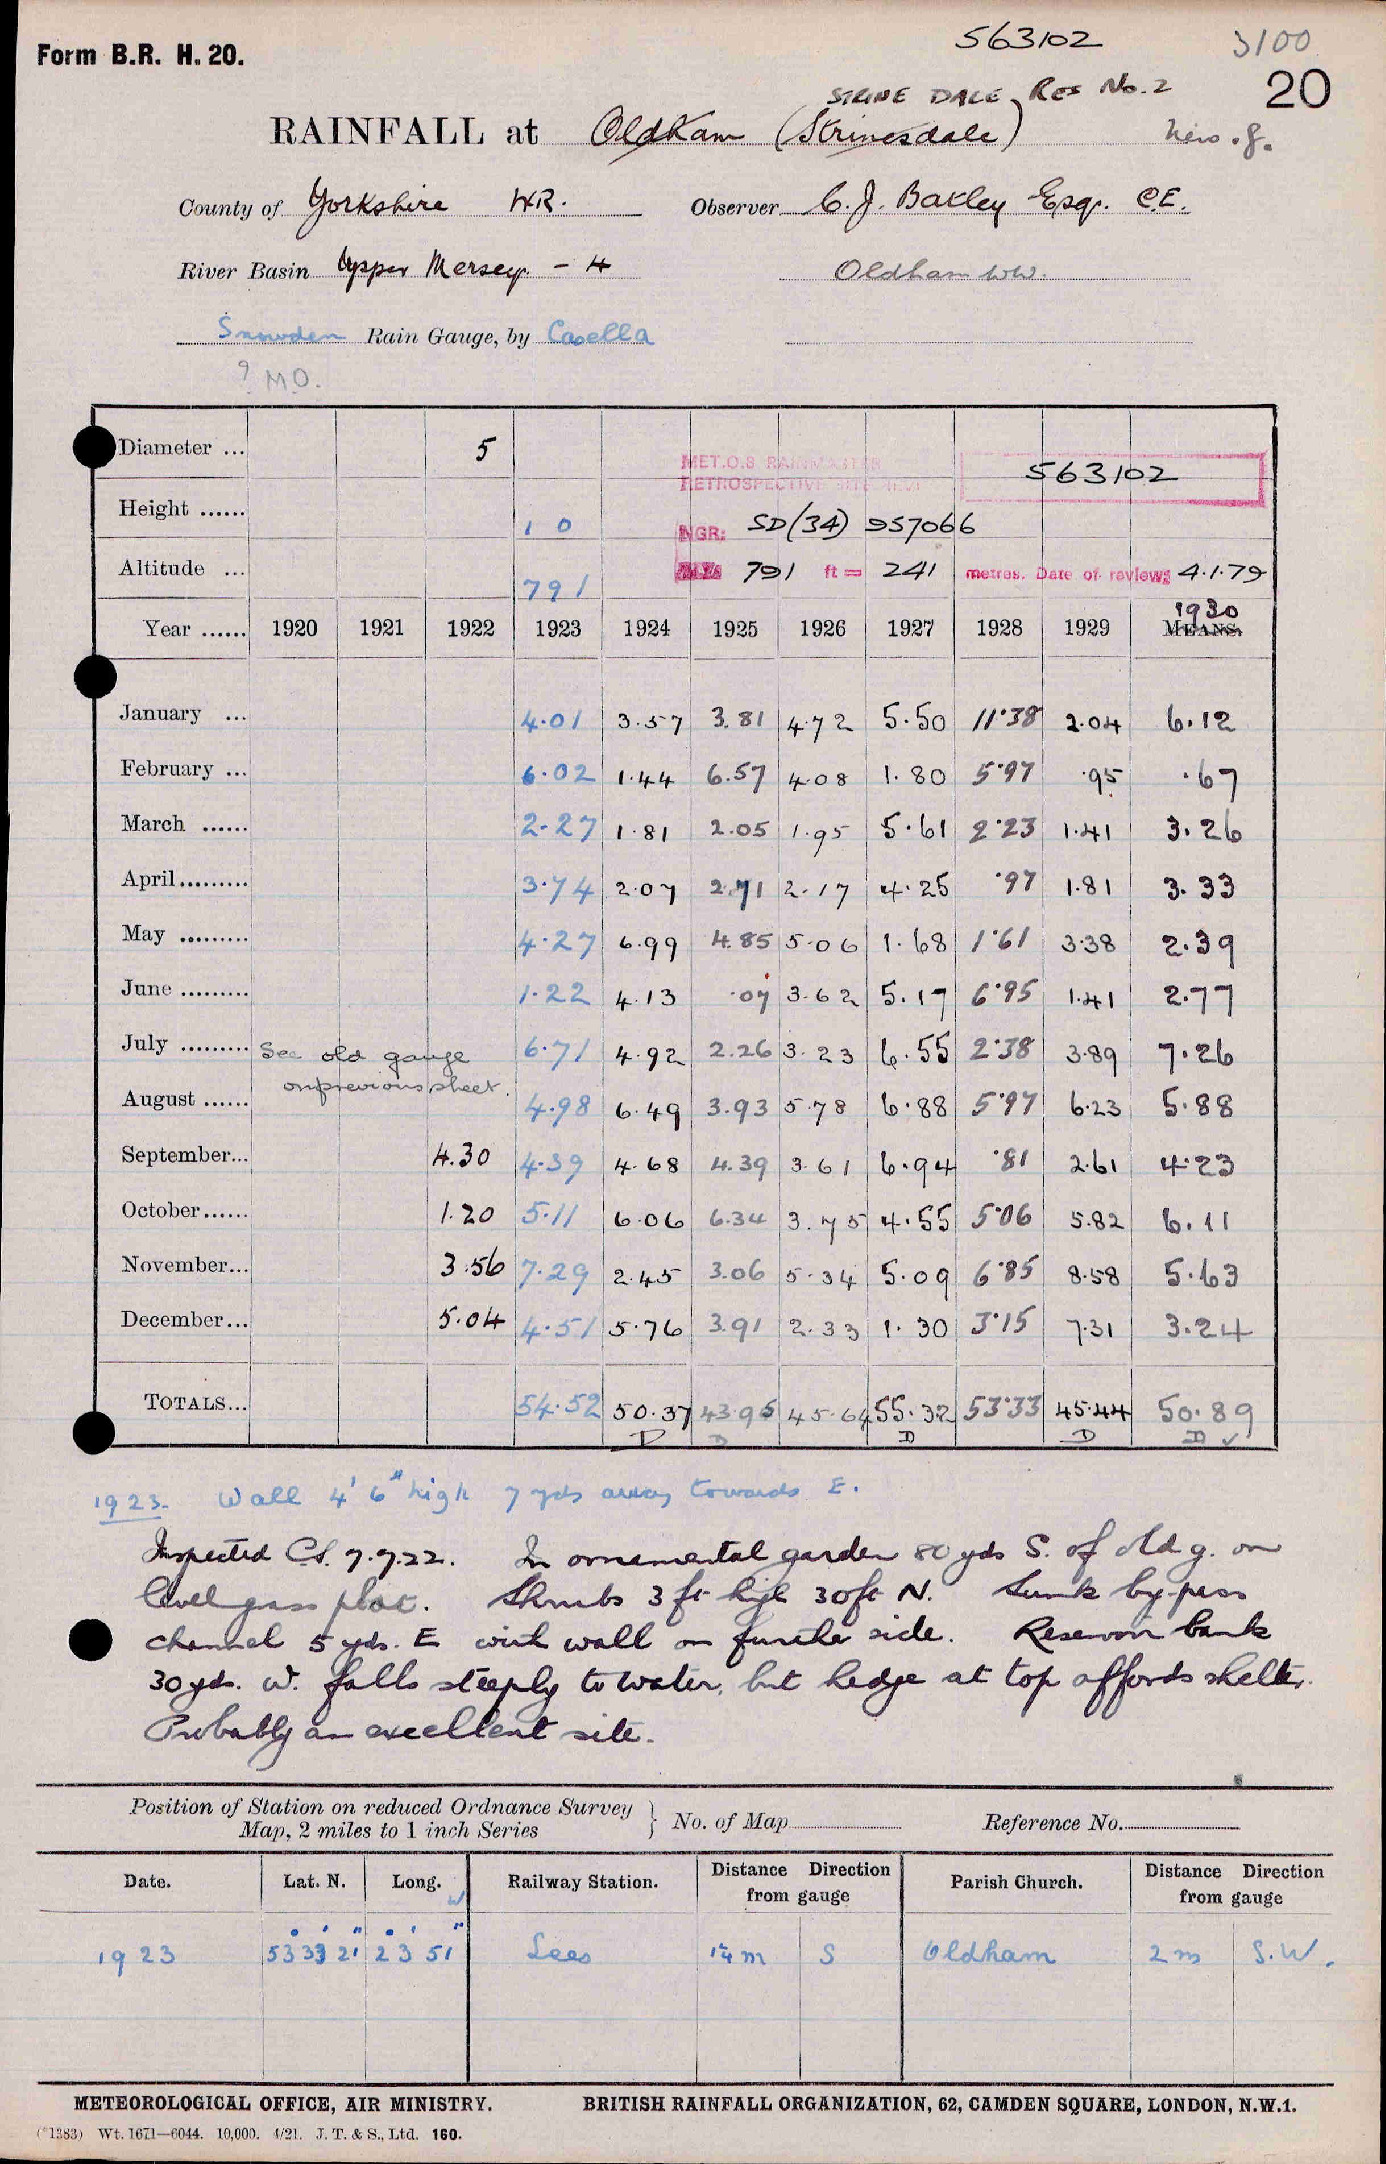 563102 3100
Form B.R. H. 20.
STRINE DALE Res No. 2 20
RAINFALL at Oldham (Strinesdale) New g.
County of Yorkshire W.R. Observer C. J. Batley Esq. C.E.
River Basin Upper Mersey - 4 Oldham W.W.
Snowden Rain Gauge, by Casella
? MO.
Diameter ... 5 MET.O.8 RAINMASTER
RETROSPECTIVE 563102
Height ...... 1 0 NGR: SD(34) 957066
Altitude ... 791 791 ft = 241 metres. Date of review: 4.1.79
1930
Year ...... 1920 1921 1922 1923 1924 1925 1926 1927 1928 1929 MEANS.
January ... 4.01 3.57 3.81 4.72 5.50 11.38 2.04 6.12
February ... 6.02 1.44 6.57 4.08 1.80 5.97 .95 .67
March ...... 2.27 1.81 2.05 1.95 5.61 2.23 1.41 3.26
April......... 3.74 2.07 2.71 2.17 4.25 .97 1.81 3.33
May ......... 4.27 6.99 4.85 5.06 1.68 1.61 3.38 2.39
June ......... 1.22 4.13 .07 3.62 5.17 6.95 1.41 2.77
July ......... See old gauge 6.71 4.92 2.26 3.23 6.55 2.38 3.89 7.26
on previous sheet.
August ...... 4.98 6.49 3.93 5.78 6.88 5.97 6.23 5.88
September... 4.30 4.39 4.68 4.39 3.61 6.94 .81 2.61 4.23
October...... 1.20 5.11 6.06 6.34 3.75 4.55 5.06 5.82 6.11
November... 3.56 7.29 2.45 3.06 5.34 5.09 6.85 8.58 5.63
December... 5.04 4.51 5.76 3.91 2.33 1.30 3.15 7.31 3.24
TOTALS... 54.52 50.37 43.95 45.64 55.32 53.33 45.44 50.89
D D D D D ✓
1923. Wall 4' 6" high 7 yds away towards E.
Inspected C.S. 7.7.22. In ornamental garden 80 yds S. of old g. on
level grass plot. Shrubs 3 ft high 30 ft N. Sunk by-pass
channel 5 yds. E with wall on further side. Reservoir bank
30 yds. W. falls steeply to water, but hedge at top affords shelter.
Probably an excellent site.
Position of Station on reduced Ordnance Survey
Map, 2 miles to 1 inch Series } No. of Map Reference No.
Date. Lat. N. Long. W Railway Station. Distance Direction from gauge Parish Church. Distance Direction from gauge
1923 53° 33' 21" 2° 3' 51" Lees 1¼ m S Oldham 2 m S.W.
METEOROLOGICAL OFFICE, AIR MINISTRY. BRITISH RAINFALL ORGANIZATION, 62, CAMDEN SQUARE, LONDON, N.W.1.
(*1383) Wt. 1671—6044. 10,000. 4/21. J. T. & S., Ltd. 160.